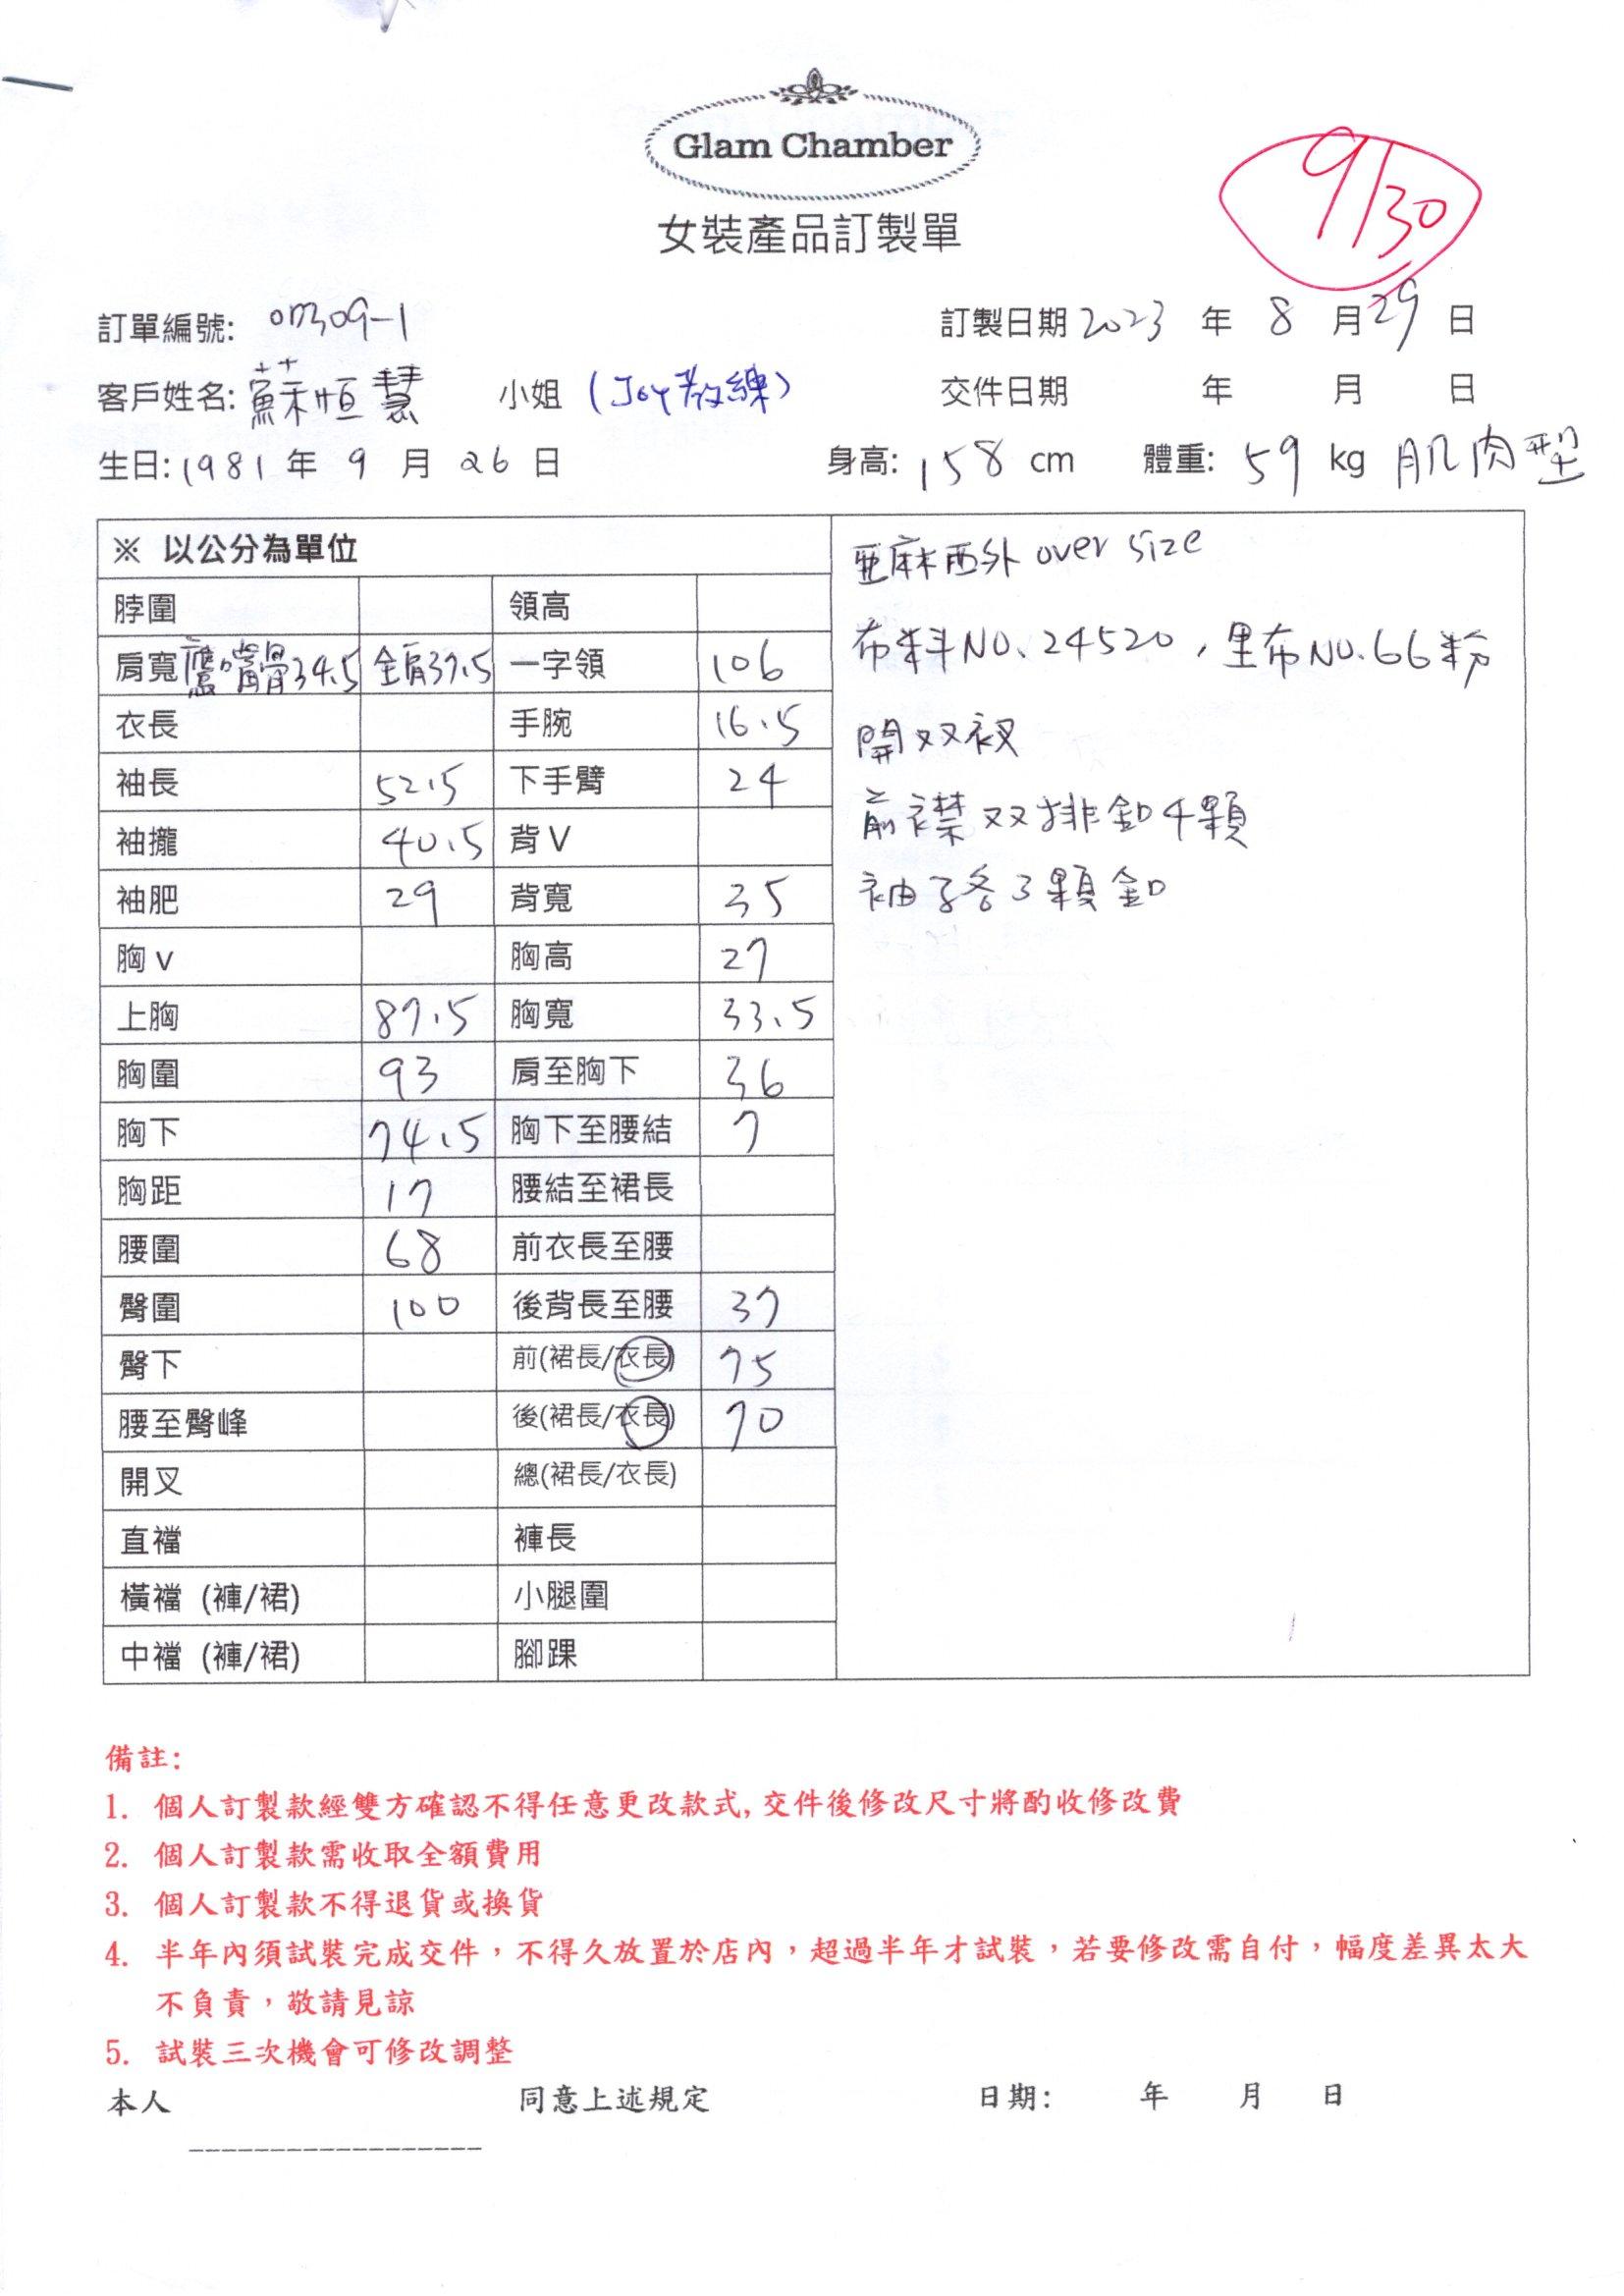 Glam Chamber
女裝產品訂製單
9/30
訂單編號: 017309-1
訂製日期 2023 年 8 月 29 日
客戶姓名: 蘇恒慧 小姐 (Joy教練)
交件日期 年 月 日
生日: 1981 年 9 月 26 日 身高: 158 cm 體重: 59 kg 肌肉型
※ 以公分為單位
脖圍 領高
肩寬 鷹嘴骨34.5 全肩37.5 一字領 106
衣長 手腕 16.5
袖長 52.5 下手臂 24
袖攏 40.5 背V
袖肥 29 背寬 35
胸 v 胸高 27
上胸 87.5 胸寬 33.5
胸圍 93 肩至胸下 36
胸下 74.5 胸下至腰結 7
胸距 17 腰結至裙長
腰圍 68 前衣長至腰
臀圍 100 後背長至腰 37
臀下 前(裙長/衣長) 75
腰至臀峰 後(裙長/衣長) 70
開叉 總(裙長/衣長)
直襠 褲長
橫襠 (褲/裙) 小腿圍
中襠 (褲/裙) 腳踝
亜麻西外 over size
布料NO.24520,里布NO.66粉
開双衩
前襟双排釦4顆
袖子各3顆釦
備註:
1. 個人訂製款經雙方確認不得任意更改款式, 交件後修改尺寸將酌收修改費
2. 個人訂製款需收取全額費用
3. 個人訂製款不得退貨或換貨
4. 半年內須試裝完成交件，不得久放置於店內，超過半年才試裝，若要修改需自付，幅度差異太大
不負責，敬請見諒
5. 試裝三次機會可修改調整
本人 同意上述規定 日期: 年 月 日